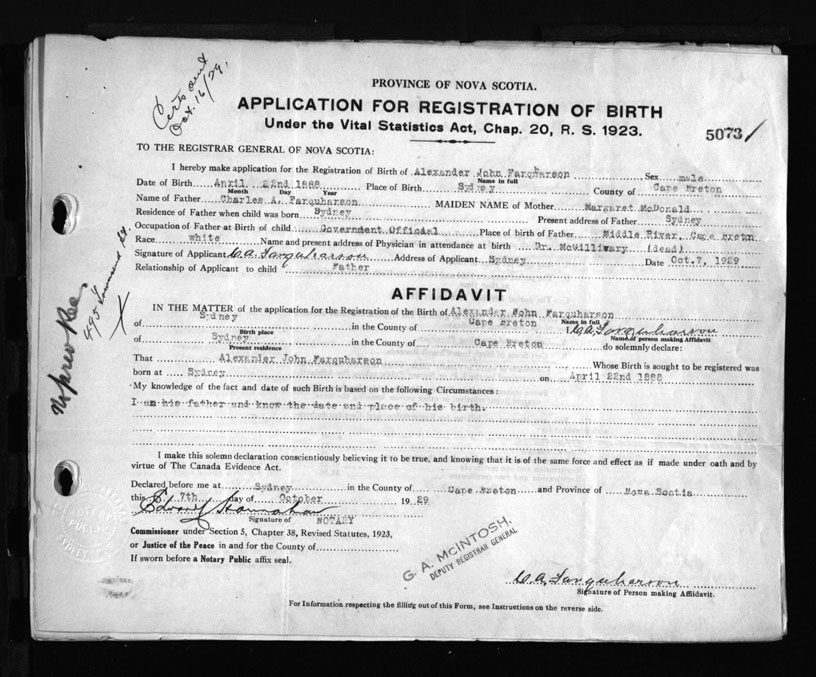 Certs sent
Oct. 16/29.
PROVINCE OF NOVA SCOTIA.
APPLICATION FOR REGISTRATION OF BIRTH
Under the Vital Statistics Act, Chap. 20, R. S. 1923.
50731
TO THE REGISTRAR GENERAL OF NOVA SCOTIA:
I hereby make application for the Registration of Birth of Alexander John Farquharson Sex male
Name in full
Date of Birth April 22nd 1888 Place of Birth Sydney County of Cape Breton
Month Day Year
Name of Father Charles A. Farquharson MAIDEN NAME of Mother Margaret McDonald
Residence of Father when child was born Sydney Present address of Father Sydney
Occupation of Father at Birth of child Government Official Place of birth of Father Middle River, Cape Breton
Race white Name and present address of Physician in attendance at birth Dr. McGilliwary (dead)
Signature of Applicant C.A. Farquharson Address of Applicant Sydney Date Oct.7, 1929
Relationship of Applicant to child Father
No prev Rec.
495
AFFIDAVIT
IN THE MATTER of the application for the Registration of the Birth of Alexander John Farquharson
Name in full
of Sydney in the County of Cape Breton I, C.A. Farquharson
Birth place Name of person making Affidavit
of Sydney in the County of Cape Breton do solemnly declare:
Present residence
That Alexander John Farquharson Whose Birth is sought to be registered was
born at Sydney on April 22nd 1888
My knowledge of the fact and date of such Birth is based on the following Circumstances:
I am his father and know the date and place of his birth.
I make this solemn declaration conscientiously believing it to be true, and knowing that it is of the same force and effect as if made under oath and by
virtue of The Canada Evidence Act.
Declared before me at Sydney in the County of Cape Breton and Province of Nova Scotia
this 7th day of October 1929
Signature of NOTARY
Commissioner under Section 5, Chapter 38, Revised Statutes, 1923,
or Justice of the Peace in and for the County of
If sworn before a Notary Public affix seal.
G. A. McINTOSH,
DEPUTY REGISTRAR GENERAL
C.A. Farquharson
Signature of Person making Affidavit.
For Information respecting the filling out of this Form, see Instructions on the reverse side.